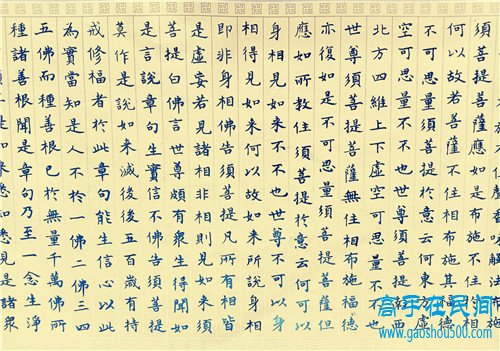 須菩提菩薩應如是布施不住
何以故若菩薩不住相布施其福德
不可思量須菩提於意云何東方虛
空可思量不不也世尊須菩提南西
北方四維上下虛空可思量不不也
世尊須菩提菩薩無住相布施福德
亦復如是不可思量須菩提菩薩但
應如所教住須菩提於意云何可以
身相見如来不不也世尊不可以身
相得見如来何以故如来所說身相
即非身相佛告須菩提凡所有相皆
是虛妄若見諸相非相則見如来須
菩提白佛言世尊頗有衆生得聞如
是言說章句生實信不佛告須菩提
莫作是說如来滅後後五百歲有持
戒修福者於此章句能生信心以此
為實當知是人不於一佛二佛三四
五佛而種善根已於無量千萬佛所
種諸善根聞是章句乃至一念生淨
来悉知悉見是諸衆
高手在民间
www.gaoshou500.com